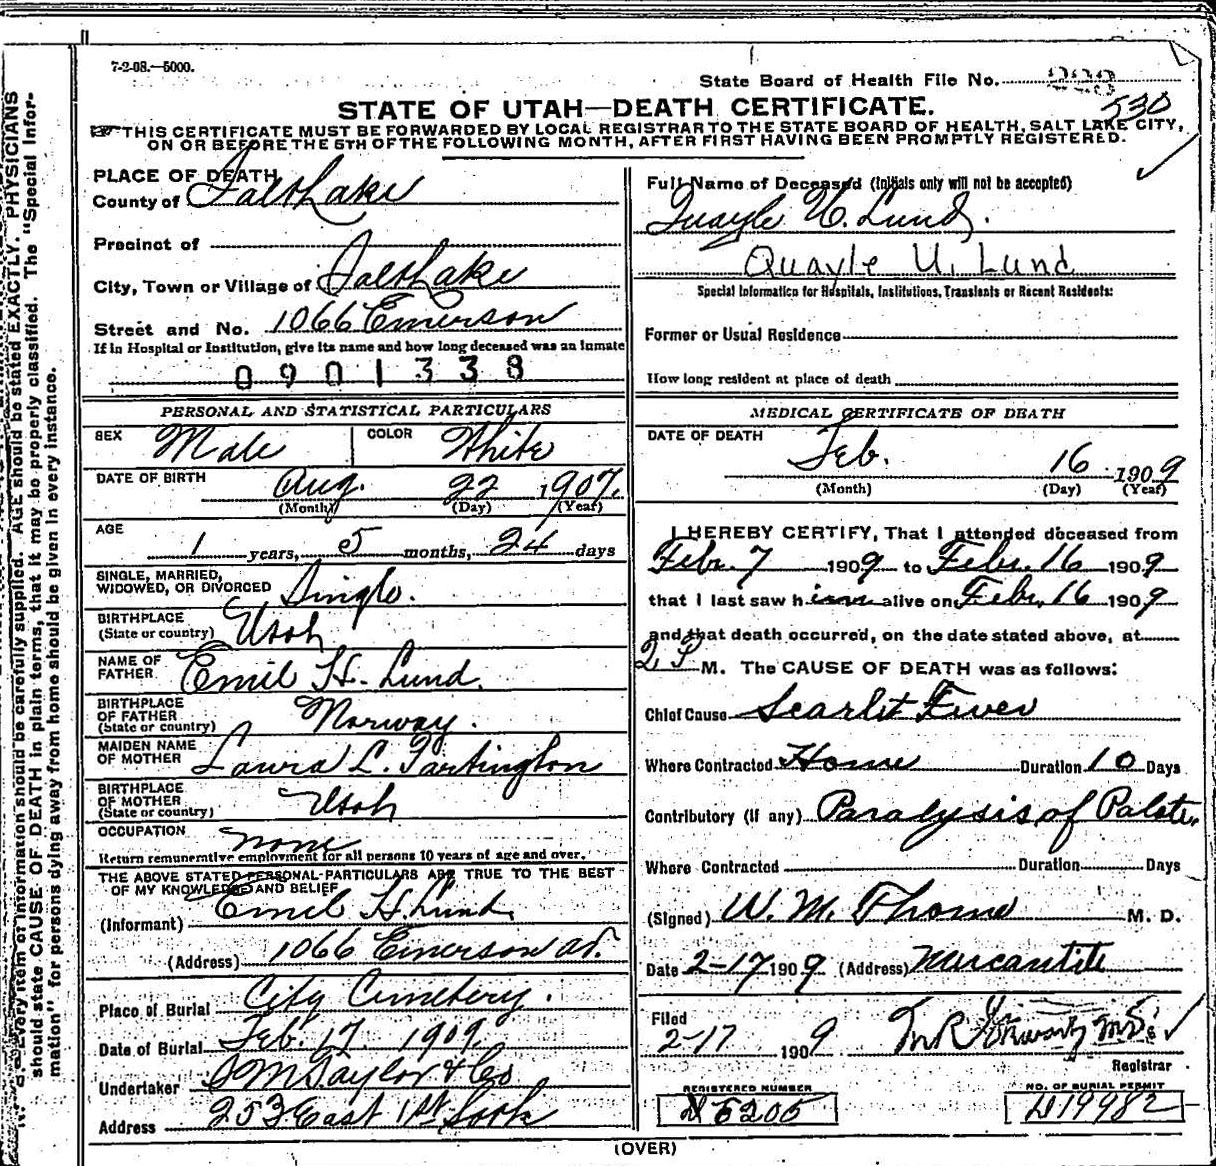 7-2-08.—5000.
State Board of Health File No. 223
530
STATE OF UTAH—DEATH CERTIFICATE.
THIS CERTIFICATE MUST BE FORWARDED BY LOCAL REGISTRAR TO THE STATE BOARD OF HEALTH, SALT LAKE CITY,
ON OR BEFORE THE 5TH OF THE FOLLOWING MONTH, AFTER FIRST HAVING BEEN PROMPTLY REGISTERED.
PLACE OF DEATH
County of Salt Lake
Precinct of
City, Town or Village of Salt Lake
Street and No. 1066 Emerson
If in Hospital or Institution, give its name and how long deceased was an inmate
0901338
PERSONAL AND STATISTICAL PARTICULARS
SEX Male COLOR White
DATE OF BIRTH Aug. 22 1907.
(Month) (Day) (Year)
AGE
1 years, 5 months, 24 days
SINGLE, MARRIED,
WIDOWED, OR DIVORCED Single.
BIRTHPLACE
(State or country) Utah
NAME OF
FATHER Emil H. Lund.
BIRTHPLACE
OF FATHER
(State or country) Norway.
MAIDEN NAME
OF MOTHER Laura L. Partington
BIRTHPLACE
OF MOTHER
(State or country) Utah
OCCUPATION none
Return remunerative employment for all persons 10 years of age and over.
THE ABOVE STATED PERSONAL PARTICULARS ARE TRUE TO THE BEST
OF MY KNOWLEDGE AND BELIEF
(Informant) Emil H. Lund.
(Address) 1066 Emerson av.
Place of Burial City Cemetery.
Date of Burial Feb. 17 1909.
Undertaker S M Taylor & Co
Address 253 East 1st South
Full Name of Deceased (Initials only will not be accepted)
Quayle U. Lund.
Quayle U. Lund
Special Information for Hospitals, Institutions, Transients or Recent Residents:
Former or Usual Residence
How long resident at place of death
MEDICAL CERTIFICATE OF DEATH
DATE OF DEATH
Feb. 16 1909
(Month) (Day) (Year)
I HEREBY CERTIFY, That I attended deceased from
Feb. 7 1909 to Feb. 16 1909
that I last saw him alive on Feb. 16 1909
and that death occurred, on the date stated above, at
2 P M. The CAUSE OF DEATH was as follows:
Chief Cause Scarlet Fever
Where Contracted Home Duration 10 Days
Contributory (if any) Paralysis of Palate.
Where Contracted Duration Days
(Signed) W. M. Thome M. D.
Date 2-17 1909 (Address) Mercantile
Filed
2-17 1909
Registrar
REGISTERED NUMBER
5205
NO. OF BURIAL PERMIT
19982
(OVER)
Every item of information should be carefully supplied. AGE should be stated EXACTLY. PHYSICIANS
should state CAUSE OF DEATH in plain terms, that it may be properly classified. The "Special Infor-
mation" for persons dying away from home should be given in every instance.